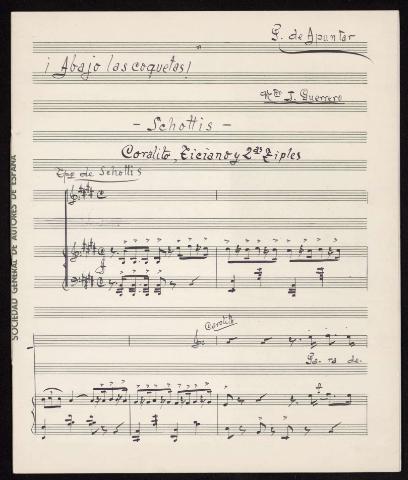 G. de Apuntar
¡Abajo las coquetas!
Mtro J. Guerrero
- Schottis -
Coralito, Ticiano y 2as Tiples
Tpo de Schottis
SOCIEDAD GENERAL DE AUTORES DE ESPAÑA
Coralito
Pa- ra de-